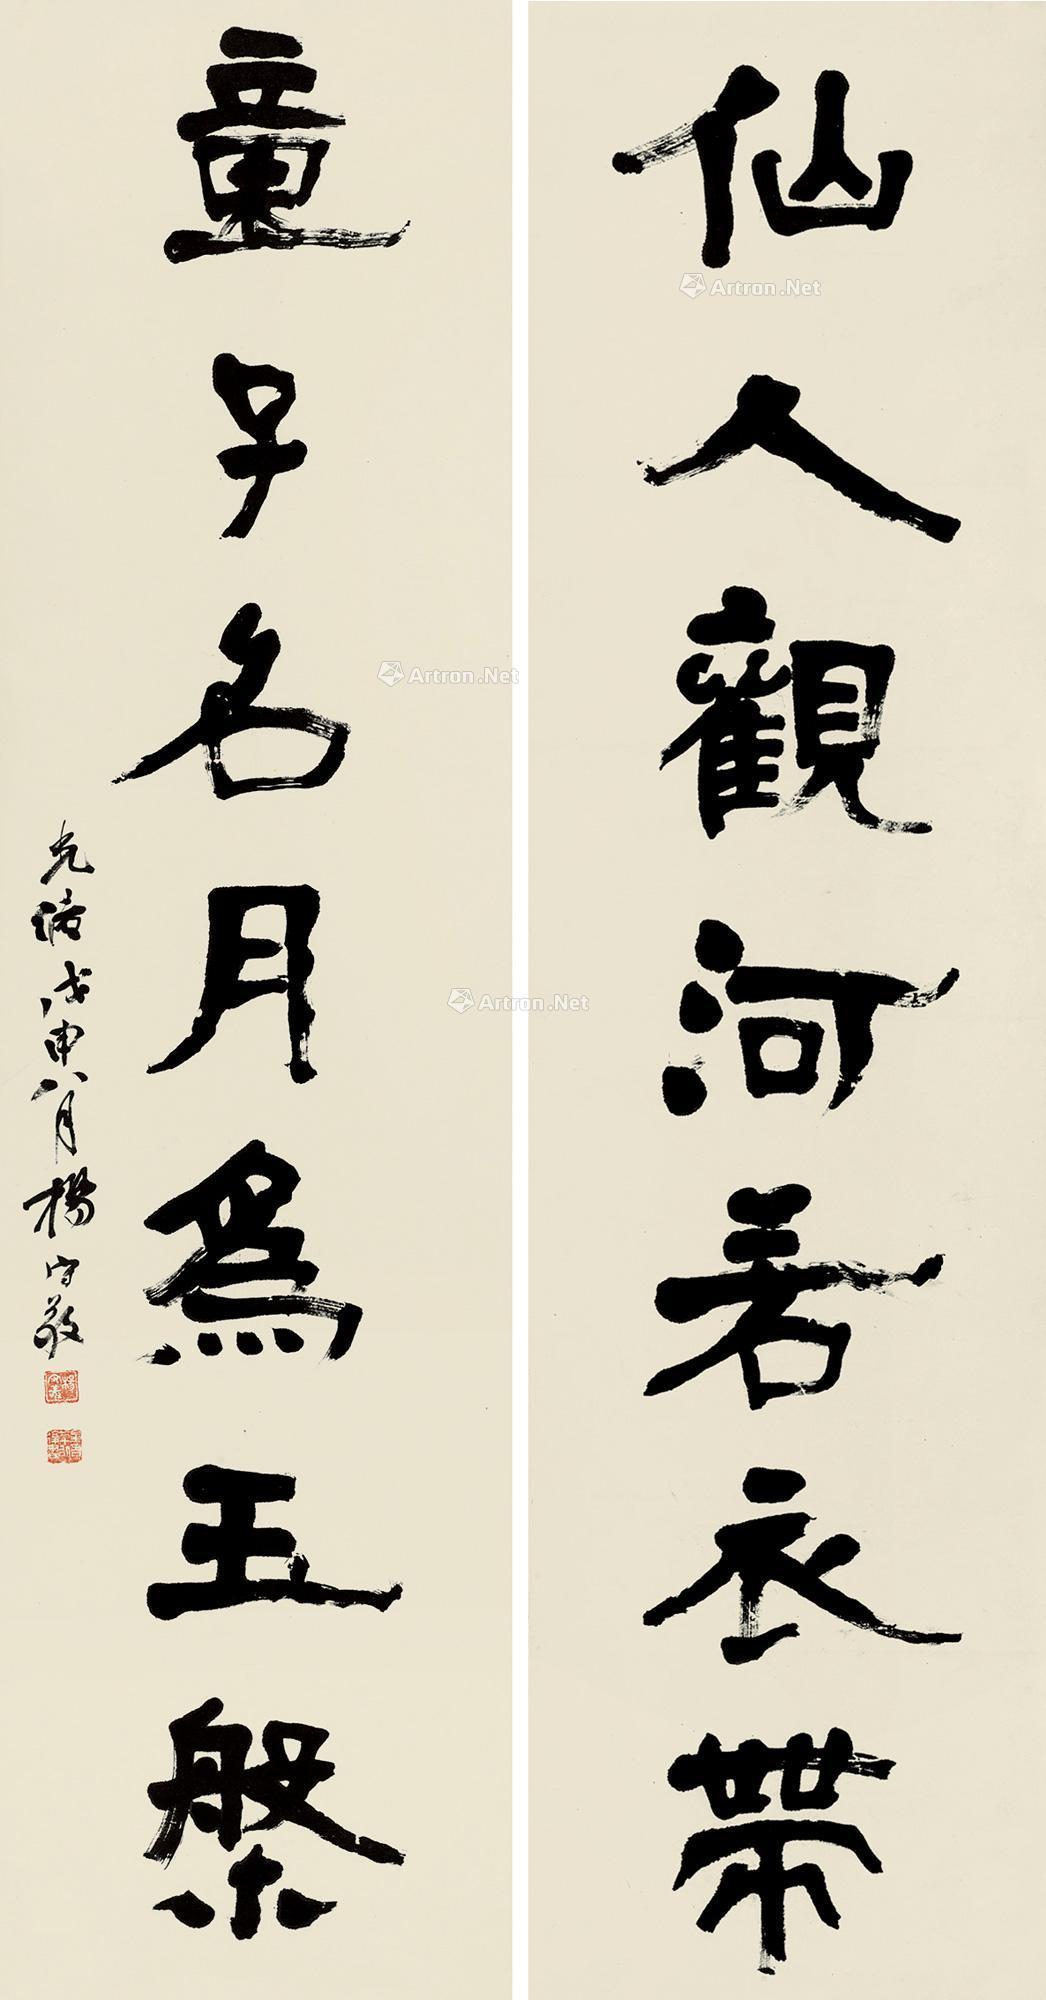 仙人觀河若衣帶
童子名月爲玉槃
光緒戊申八月楊守敬
Artron.Net
Artron.Net
Artron.Net